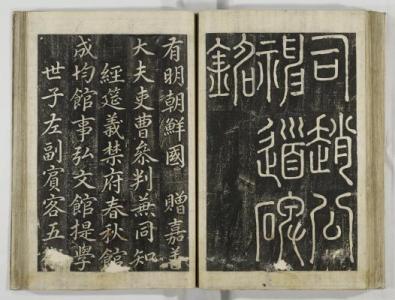 司趙公
神道碑
銘
有明朝鮮國 贈嘉善
大夫吏曹叅判兼同知
經筵義禁府春秋館
成均館事弘文館提學
世子左副賓客五